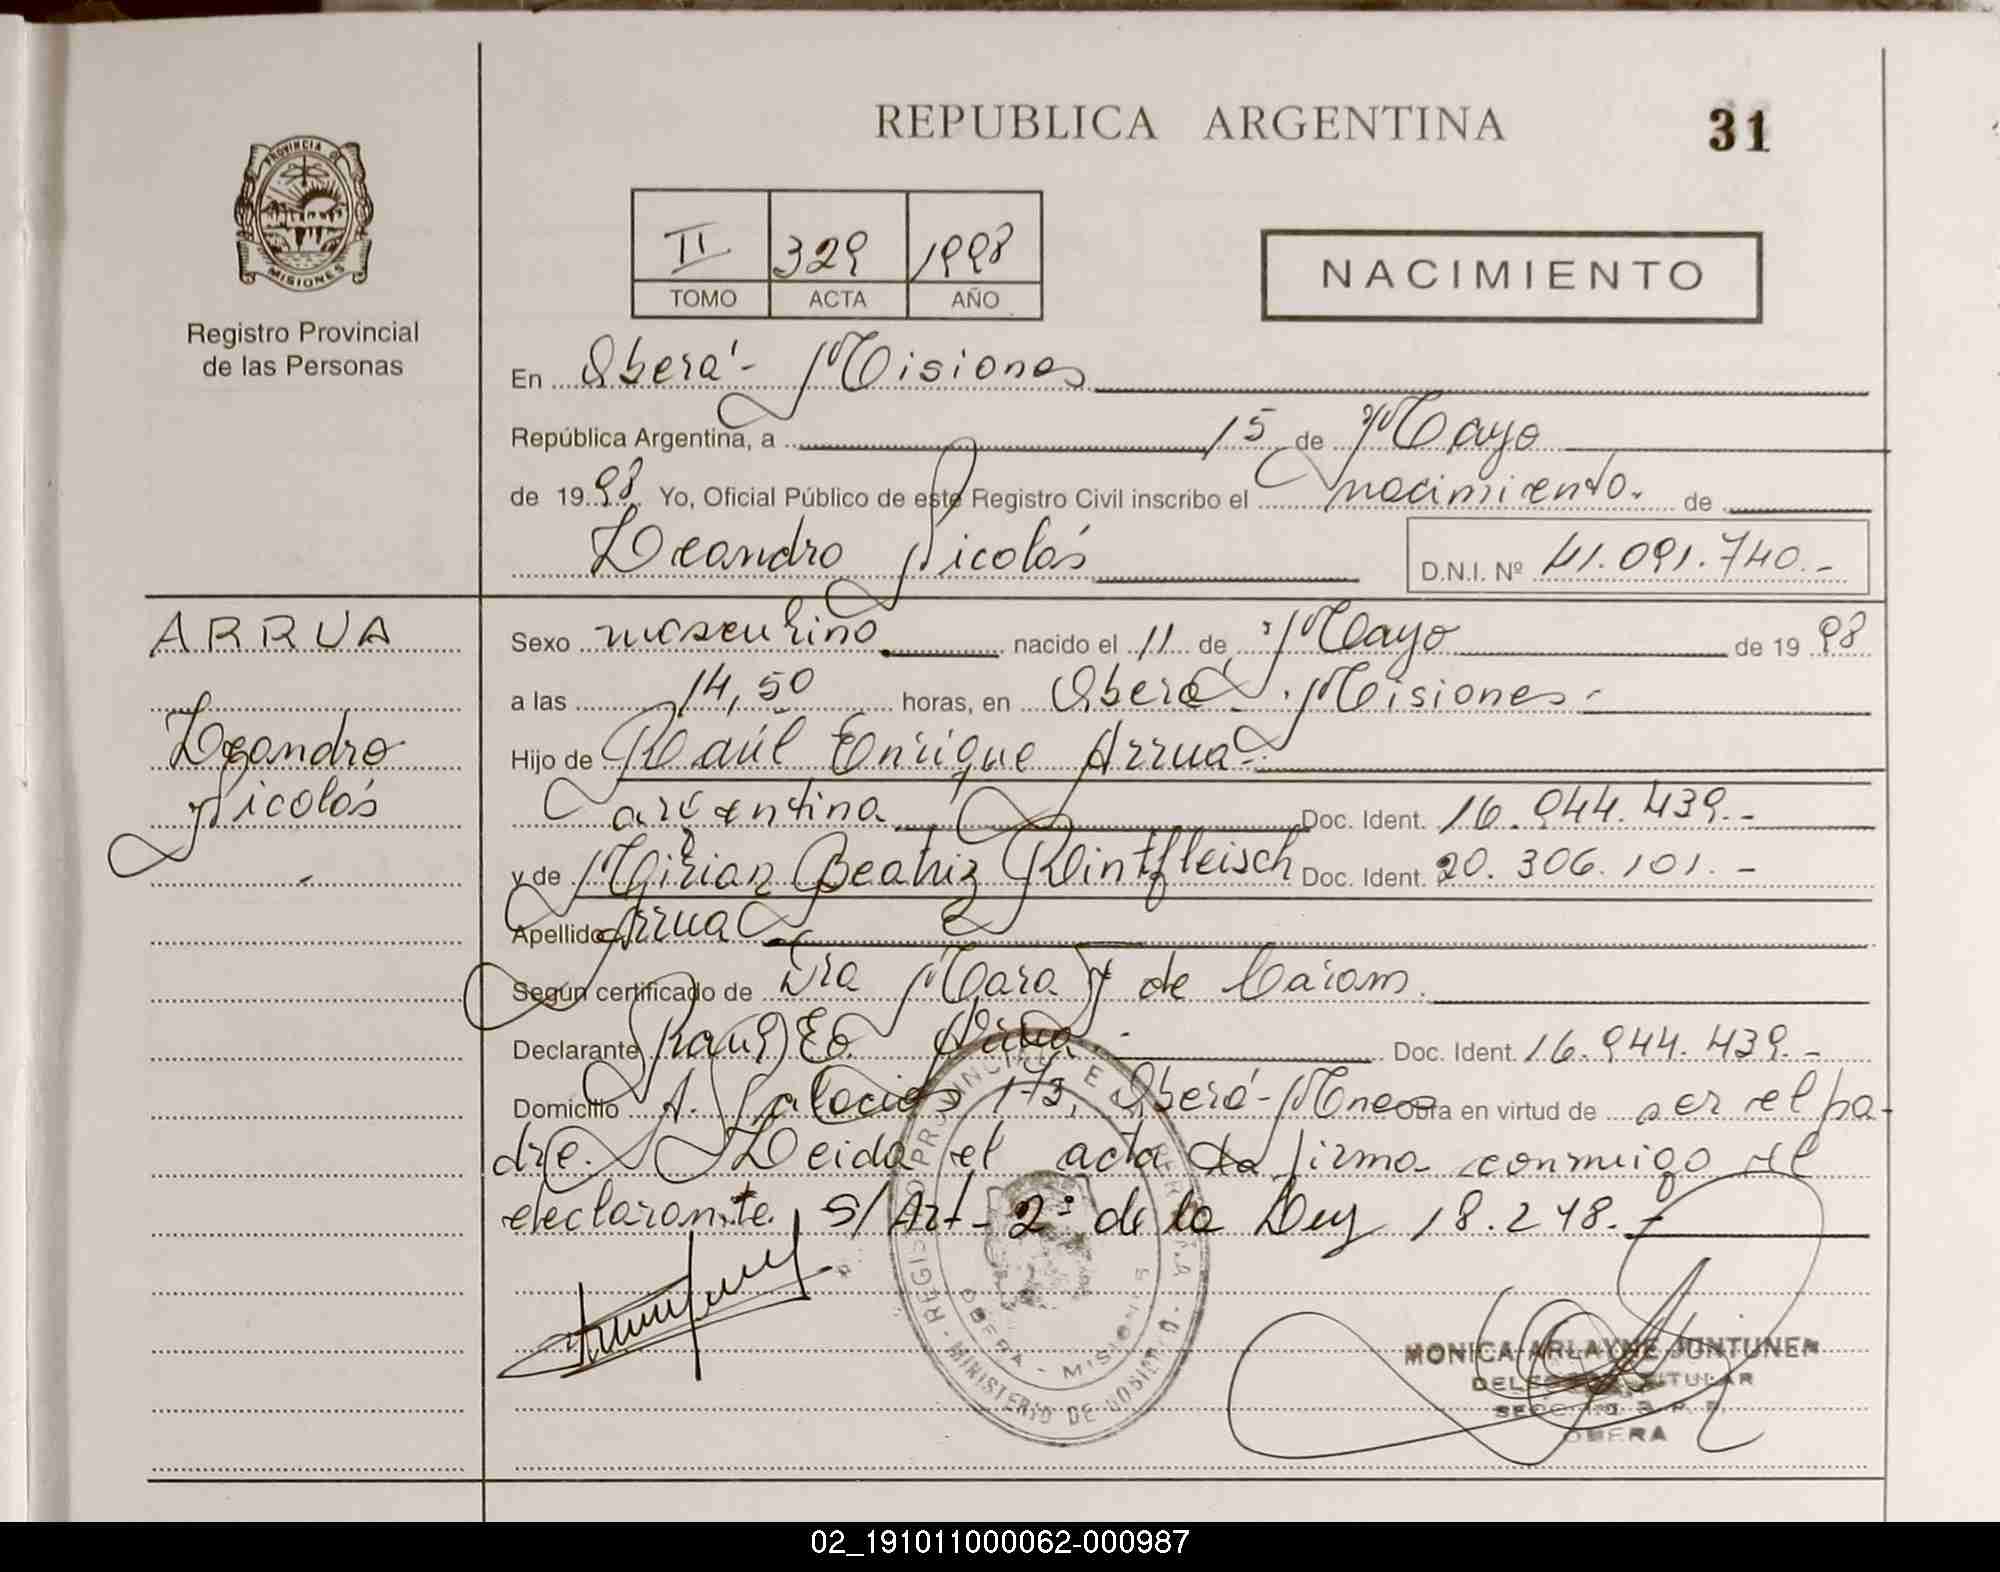 REPUBLICA ARGENTINA
31
PROVINCIA DE
MISIONES
Registro Provincial
de las Personas
II 329 1998
TOMO ACTA AÑO
NACIMIENTO
En Oberá - Misiones
República Argentina, a 15 de Mayo
de 1998 Yo, Oficial Público de este Registro Civil inscribo el nacimiento. de
Leandro Nicolás
D.N.I. Nº 41.091.740.-
ARRUA
Leandro
Nicolás
Sexo masculino nacido el 11 de Mayo de 1998
a las 14,50 horas, en Oberá - Misiones -
Hijo de Raúl Enrique Arrua -
argentina Doc. Ident. 16.944.439.-
y de Mirian Beatriz Rintfleisch Doc. Ident. 20.306.101.-
Apellido Arrua
Según certificado de Dra Mara de
Declarante Raul Eo. Arrua - Doc. Ident 16.944.439.-
Domicilio A. Palacios 173, Oberá - Mnes Obra en virtud de ser el pa-
dre. Leida el acta la firma conmigo el
declarante. S/ Art- 2º de la Ley 18.248.-
MINISTERIO DE
OBERA - MISIONES
MONICA ARLAYNE JUNTUNEN
DELEGADA TITULAR
OBERA
02_191011000062-000987